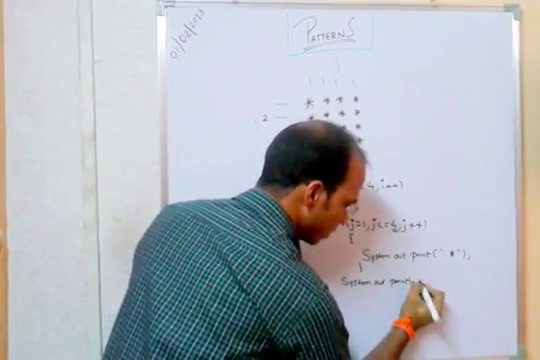 01/02/2013
PATTERNS
j
1 1 1 1
* * * *
2 * * * *
*
4, i++)
(j=1, j<=4, j++)
{
System out print(" * ");
}
System out println